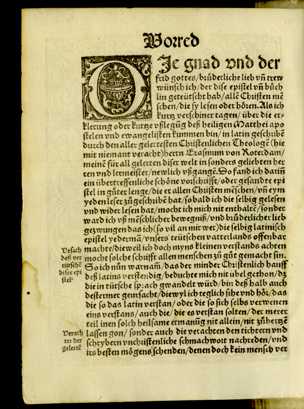 Vorred
Die gnad vnd der
frid gottes, brüderliche lieb vñ treü
wünsch ich, der dise epistel vñ büch
lin getütscht hab, allē Christen mē
schen, die sy lesen oder hören. Als ich
kurtz verschiner tagen, über die er-
klerung oder kurtze vßlegūg deß heiligen Matthei apo
stelen vnd ewangelisten kummen bin, in latin geschribē
durch den aller gelertesten Christenlichen Theologē (bis
mit niemant verachtē) herrn Erasimum von Roterdam,
meinē für all gelerten diser welt in sonders geliebten her
ren vnd lermeister, newlich vßgangē. So fand ich darin
ein übertreffenliche schöne vorschrifft, oder gesandte epi
stel in güter lenge, die er allen Christen mēschen, vñ eym
yeden leser zů geschribē hat, so bald ich die selbig gelesen
vnd wider lesen hat, mocht ich mich nit enthaltē, sonder
ward ich vß menschlicher bewegnuß, vnd brüderlicher lieb
gezwungen das ich so vil an mir wer, die selbig latinisch
epistel yederman, vnsers tütschen vatterlands offenbar
machte, dieweil ich doch mynß kleinen verstands achten
mocht solche schrifft allen menschen zů gůt gemacht sin.
So ich nům warnam, das der minder Christenlich hauff
deß latins verstendig, beduchte mich nit übel gethon, dz
die in tütsche sprach gwandelt würd, bin deß halb auch
dester mer geursacht, die wyl ich teglich sihe vnd hör, das
die so das latin verstan, oder die so sich selbs verwenen
eins verstans, auch die, die es verstan solten, der merer
teil inen solch heilsame ermanūg nit allein, nit zů hertzē
lassen gon, sonder auch die verachten den tichten vnd
schryben vnchristenliche schmachwort nachreden, vnd
irs besten mögens schenden, denen doch kein mensch ver
Vrsach
deß ver
tütschē
diser epi
stel
Verach
ter der
gelerte